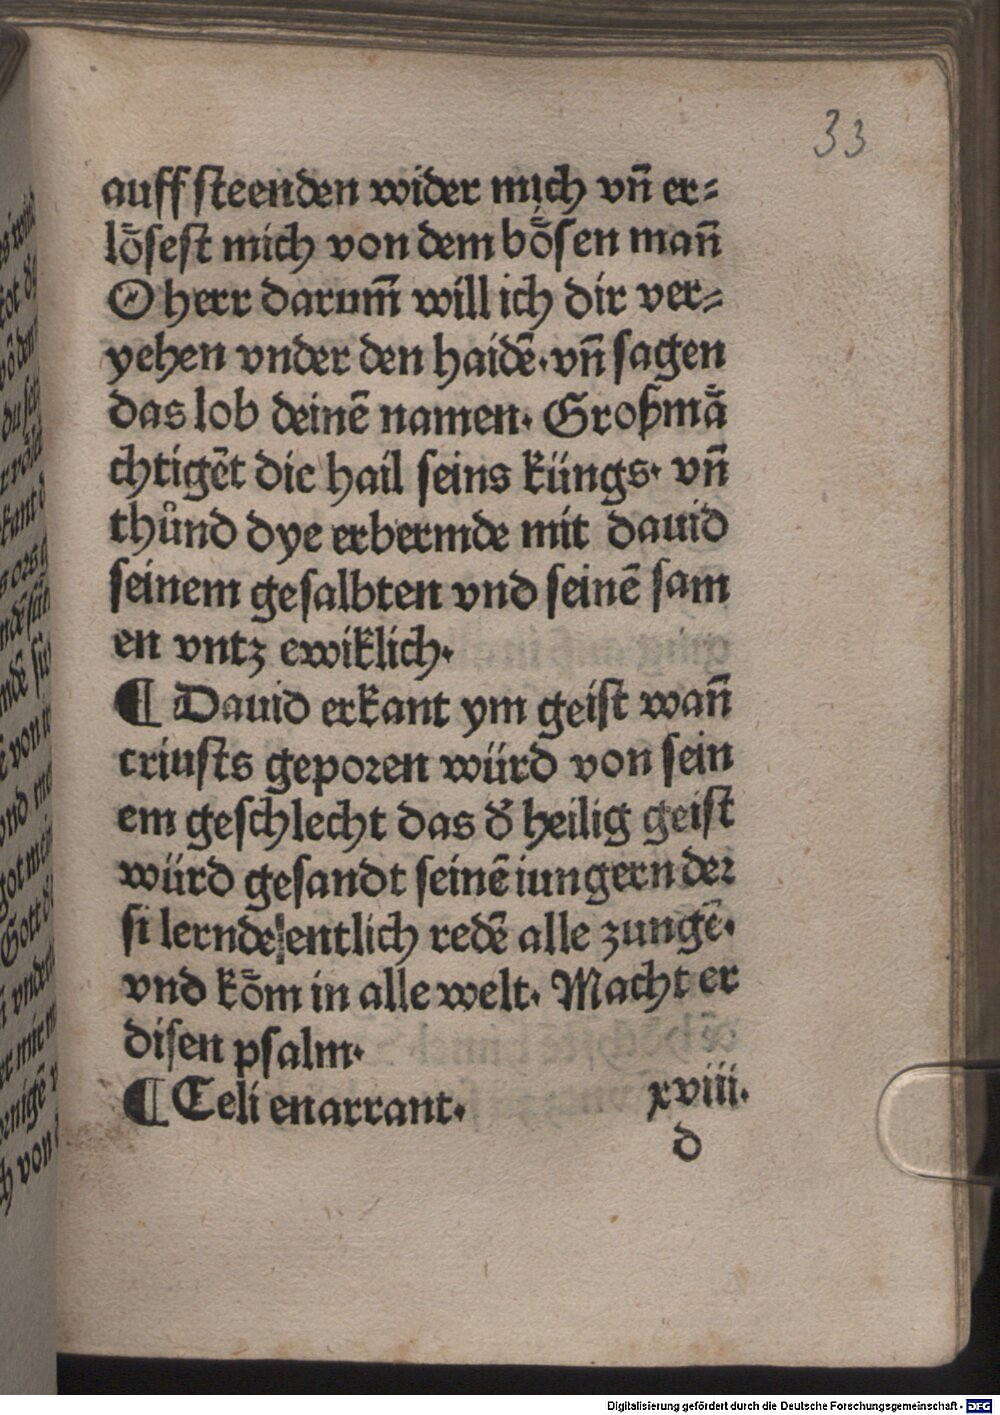 33
auffsteenden wider mich vn̄ er⸗
lo᷑sest mich von dem bo᷑sen man̄
O herr darum̄ will ich dir ver⸗
yehen vnder den haidē. vn̄ sagen
das lob deinē namen. Großmaͤ
chtigēt die hail seins küngs. vn̄
thůnd dye erbermde mit dauid
seinem gesalbten vnd seinē sam
en vntz ewiklich.
¶ Dauid erkant ym geist wan̄
criusts geporen würd von sein
em geschlecht das d᷑ heilig geist
würd gesandt seinē iungern der
si lernde entlich redē alle zungē.
vnd kōm in alle welt. Macht er
disen psalm.
¶ Celi enarrant. xviii.
d
Digitalisierung gefördert durch die Deutsche Forschungsgemeinschaft - DFG